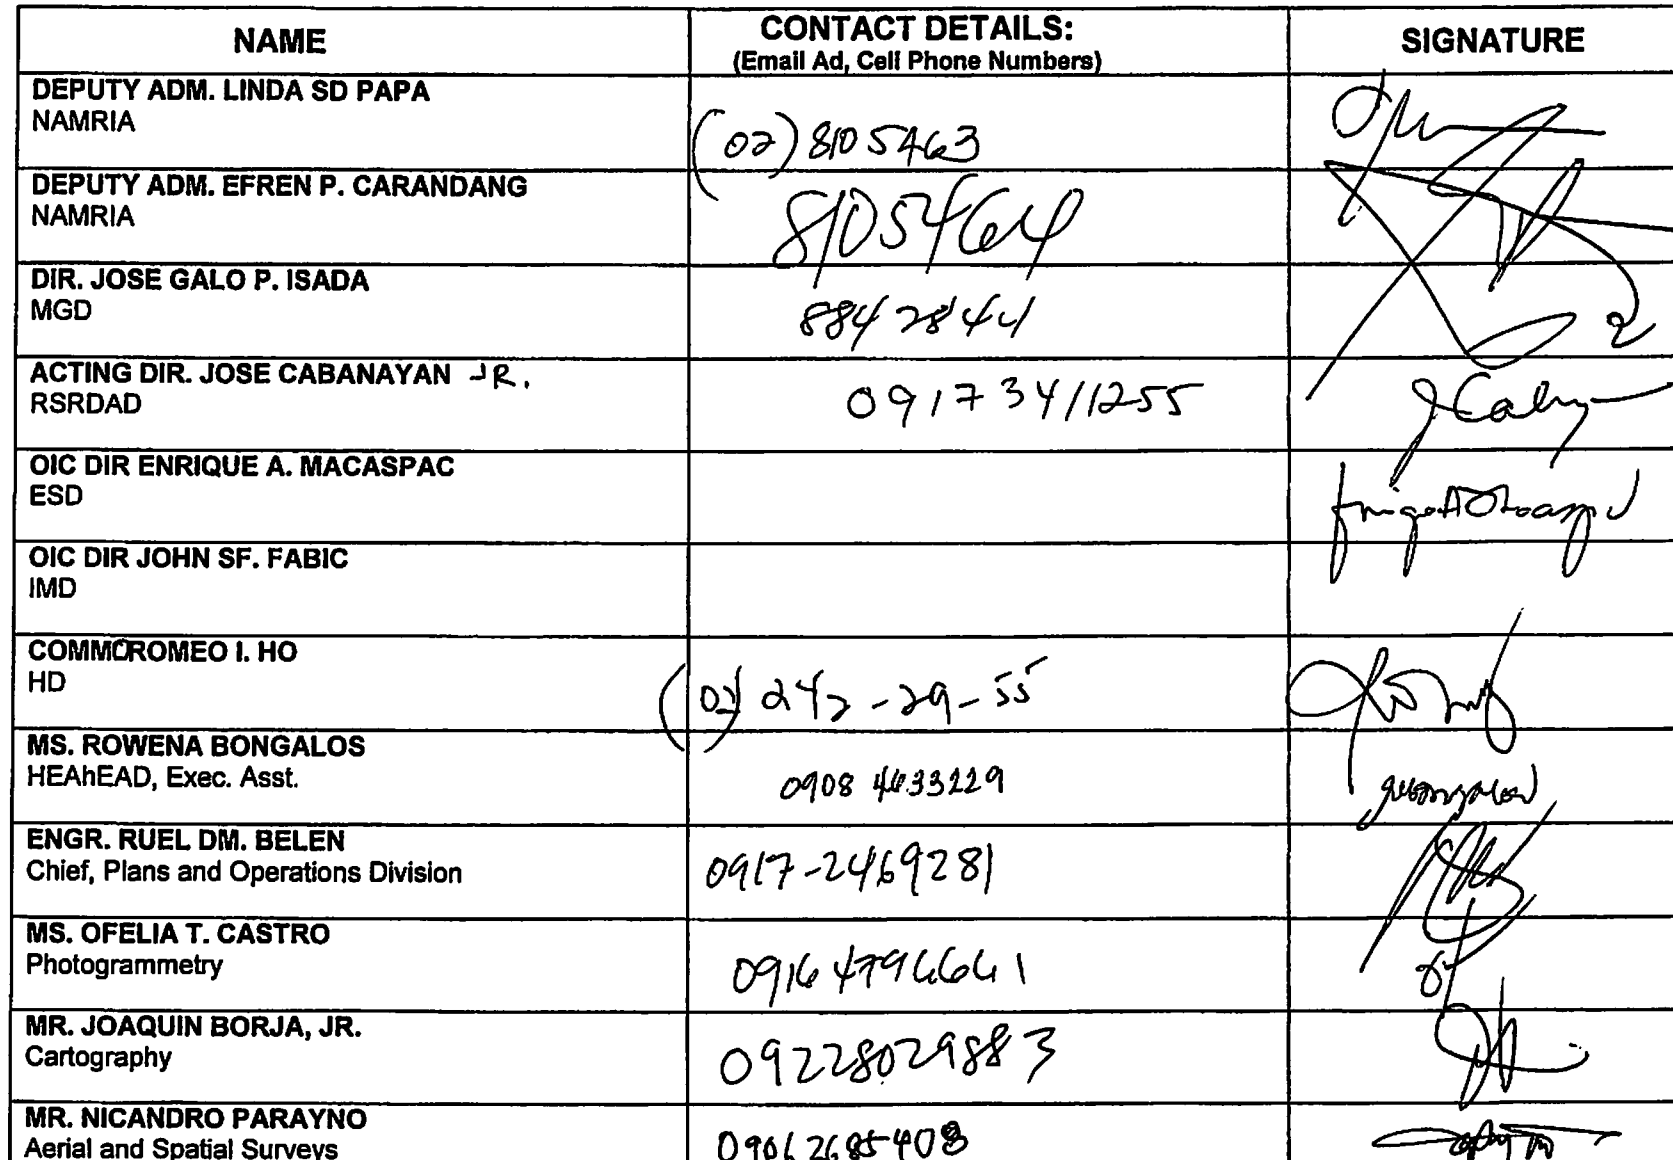 NAME
CONTACT DETAILS:
(Email Ad, Cell Phone Numbers)
SIGNATURE
DEPUTY ADM. LINDA SD PAPA
NAMRIA
(02) 8105463
DEPUTY ADM. EFREN P. CARANDANG
NAMRIA
8105464
DIR. JOSE GALO P. ISADA
MGD
8842844
ACTING DIR. JOSE CABANAYAN JR.
RSRDAD
09173411255
OIC DIR ENRIQUE A. MACASPAC
ESD
OIC DIR JOHN SF. FABIC
IMD
COMMOROMEO I. HO
HD
(02) 242-29-55
MS. ROWENA BONGALOS
HEAhEAD, Exec. Asst.
0908 4633229
ENGR. RUEL DM. BELEN
Chief, Plans and Operations Division
0917-2469281
MS. OFELIA T. CASTRO
Photogrammetry
09164796661
MR. JOAQUIN BORJA, JR.
Cartography
09228029883
MR. NICANDRO PARAYNO
Aerial and Spatial Surveys
09062685408